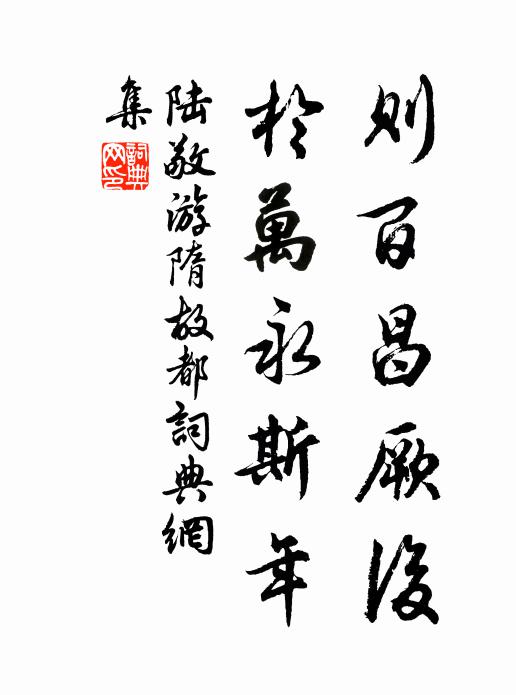 則百昌厥後
於萬永斯年
陆敬游隋故都詞典網
集
詞典
网印